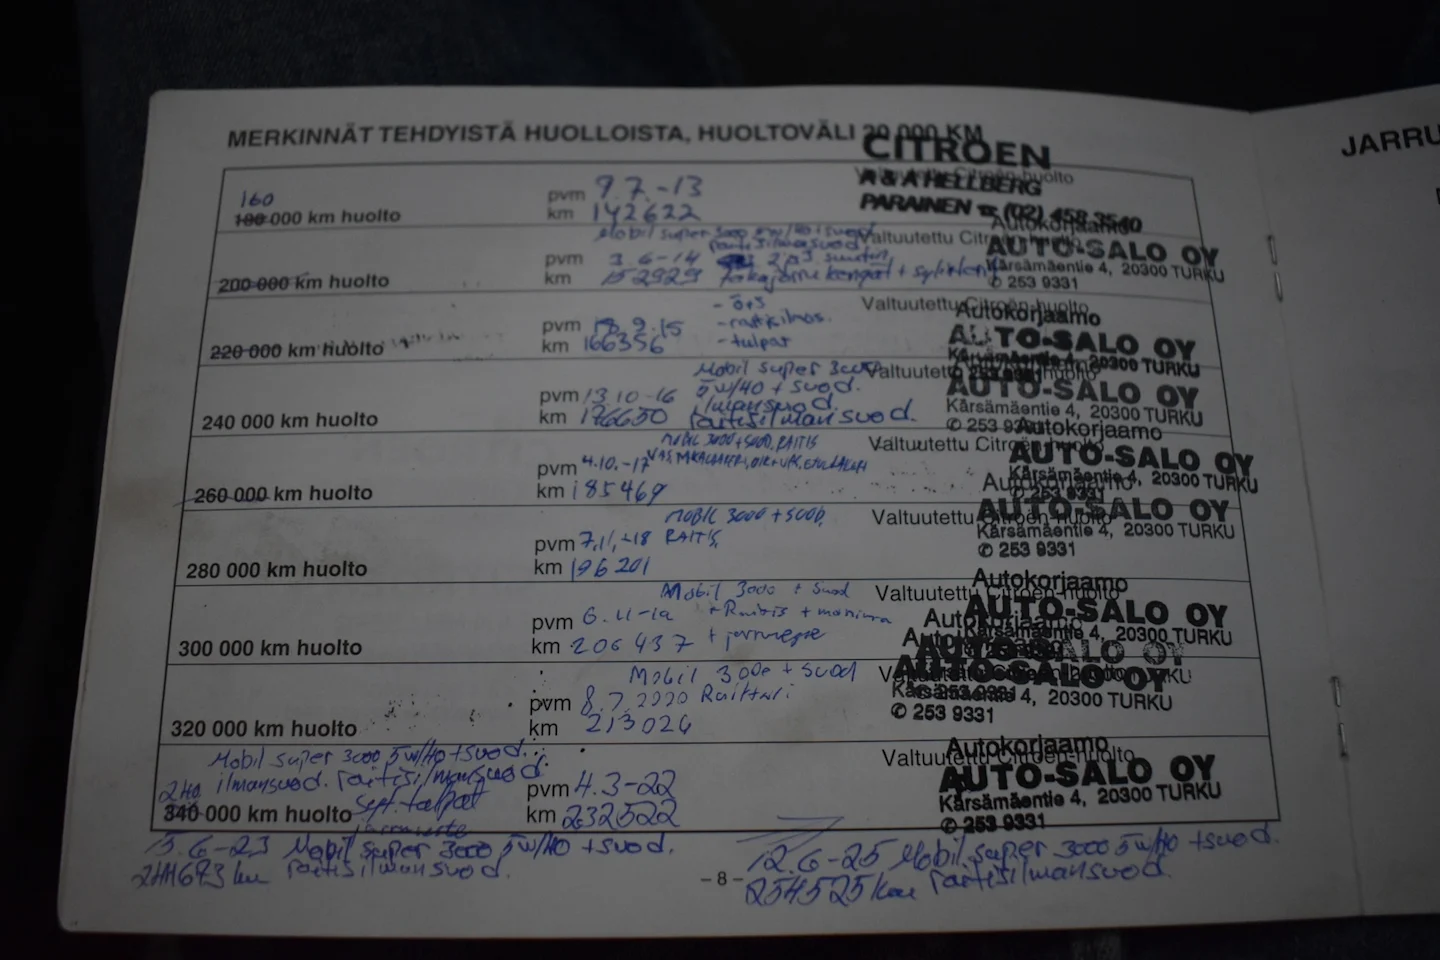 MERKINNÄT TEHDYISTÄ HUOLLOISTA, HUOLTOVÄLI 20 000 KM
JARRU
CITROËN
A & A HELLBERG
PARAINEN ☎ (02) 458 3540
160
180 000 km huolto
pvm 9.7.-13
km 142622
Valtuutettu Citroën-huolto
Mobil super 3000 5w/40 + suod.
raitisilmansuod.
200 000 km huolto
pvm 3.6-14
km 152929 Takajarrukengät + sylinterit
Valtuutettu Citroën-huolto
Autokorjaamo
AUTO-SALO OY
Kärsämäentie 4, 20300 TURKU
✆ 253 9331
- ö+s
- raitisilmas.
- tulpat
220 000 km huolto
pvm 18.9.15
km 166356
Valtuutettu Citroën-huolto
Autokorjaamo
AUTO-SALO OY
Kärsämäentie 4, 20300 TURKU
✆ 253 9331
Mobil super 3000
5w/40 + suod.
ilmansuod.
raitisilmansuod.
240 000 km huolto
pvm 13.10-16
km 176650
Valtuutettu Citroën-huolto
AUTO-SALO OY
Kärsämäentie 4, 20300 TURKU
✆ 253 9331
MOBIL 3000 + SUOD, RAITIS
260 000 km huolto
pvm 4.10.-17
km 185469
Valtuutettu Citroën-huolto
Autokorjaamo
AUTO-SALO OY
Kärsämäentie 4, 20300 TURKU
✆ 253 9331
MOBIL 3000 + SUOD,
RAITIS,
280 000 km huolto
pvm 7.11,-18
km 196201
Valtuutettu Citroën-huolto
Autokorjaamo
AUTO-SALO OY
Kärsämäentie 4, 20300 TURKU
✆ 253 9331
Mobil 3000 + suod
+ Raitis +
300 000 km huolto
pvm 6.11-19
km 206437 + jarruneste
Valtuutettu Citroën-huolto
Autokorjaamo
AUTO-SALO OY
Kärsämäentie 4, 20300 TURKU
Mobil 3000 + suod
320 000 km huolto
pvm 8.7.2020
km 213026
Autokorjaamo
AUTO-SALO OY
Kärsämäentie 4, 20300 TURKU
✆ 253 9331
Mobil super 3000 5w/40 + suod.
ilmansuod. raitisilmansuod.
240
340 000 km huolto
syt. tulpat
jarruneste
pvm 4.3-22
km 232522
Valtuutettu Citroën-huolto
Autokorjaamo
AUTO-SALO OY
Kärsämäentie 4, 20300 TURKU
✆ 253 9331
5.6-23 Mobil super 3000 5w/40 + suod.
244673 km raitisilmansuod.
12.6-25 Mobil super 3000 5w/40 + suod.
254525 km raitisilmansuod.
– 8 –